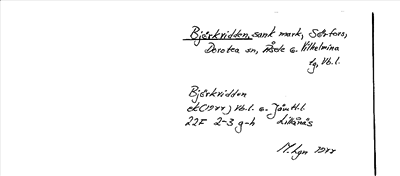 Björkvidden, sank mark, Sörfors,
Dorotea sn, Åsele o. Vilhelmina
lg, Vb.l.
Björkvidden
ek (1977) Vb.l. o. Jämtl.l.
22F 2-3 g-h Lillånäs
M.Lgn 1977